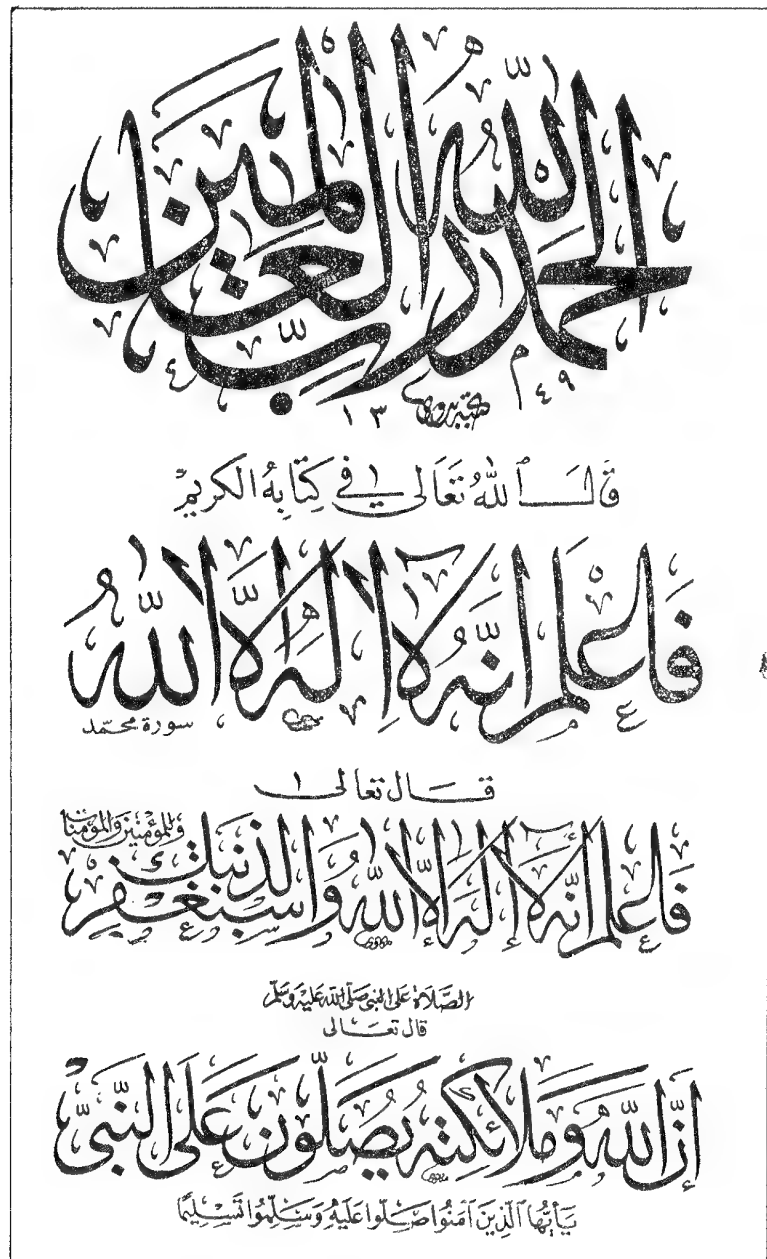 الحمد لله رب العالمين
١٣٤٩
قال الله تعالى في كتابه الكريم
فاعلم انه لا اله الا الله
سورة محمد
قال تعالى
فاعلم أنه لا إله إلا الله واستغفر لذنبك
وللمؤمنين والمؤمنات
الصلاة على النبي صلى الله عليه وسلم
قال تعالى
إن الله وملائكته يصلون على النبي
يأيها الذين آمنوا صلوا عليه وسلموا تسليما